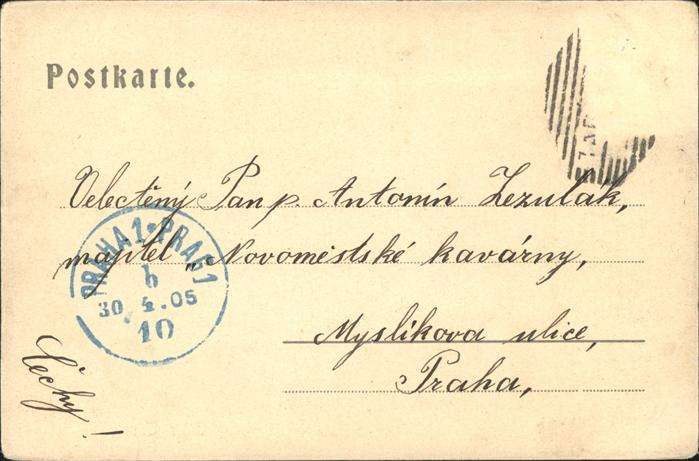 Postkarte.
Velectěný Pan p. Antonín Zezulak,
majitel „Novoměstské kavárny,
Myslíkova ulice,
Praha,
Čechy!
PRAHA 1 • PRAG 1
b
30 4.05
10